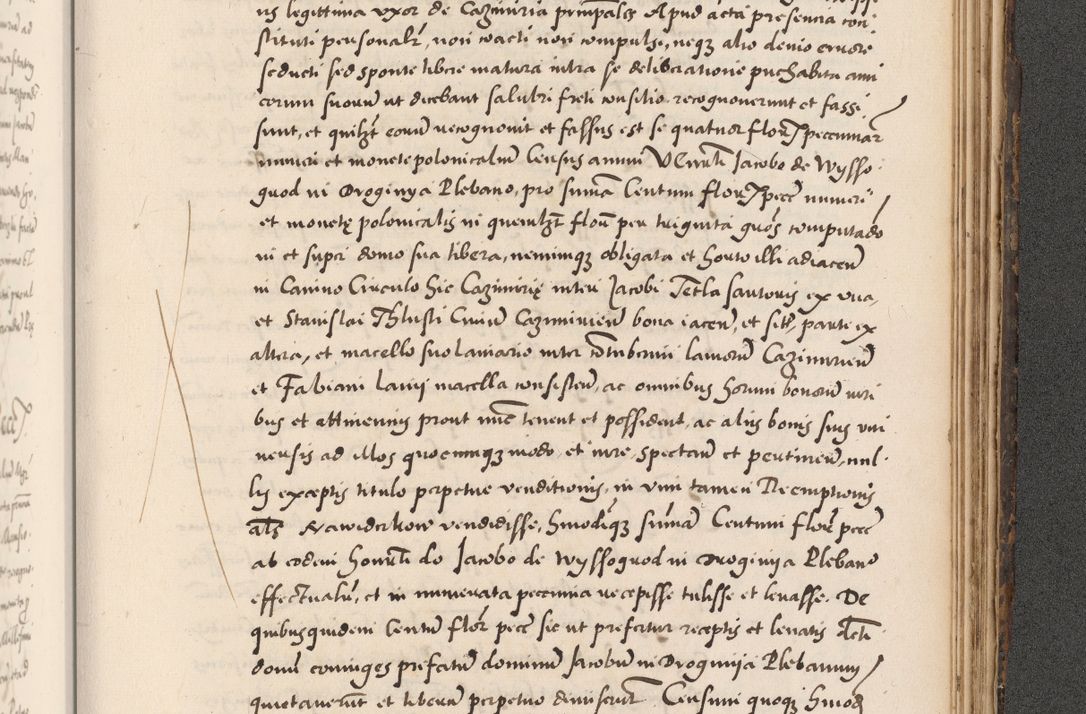 us legittima uxor de Cazimiria principales Apud acta presencia con
stituti personalr, non coacti non compulsi, neqз alio denio errore
seducti sed sponte libere matura intra se deliberatione prehabita ami
corum suorum ut dicebant salubri freti consilio recognoverunt et fassi
sunt, et quilзt eorum recognovit et fassus est se quatuor flor pecuniar
numeri et monete polonicalium Census annui Venerali Jacobo de Wysso
quod in Droginya Plebano, pro summa Centum flor pecc numeri
et monetę polonicalis in quemlзt flor per triginta gros computando
in et super domo sua libera, neminiqз obligata et horto illi adiacen
in Canino Circulo hic Cazimirię inter Jacobi Tetla sartoris ex una
et Stanislai Thlusti Civium Cazimirien bona iacen, et sitis parte ex
altera, et macello suo laniario inter contubernii laniorum Cazimirien
et Fabiani lanij macella consisten, ac omnibus horum bonorum iuri
bus et attinenciis prout nunc tenent et possident, ac aliis bonis suis uni
versis ad illos quocunqз modo et iure spectan et pertinen, nul
lis exceptis titulo perpetue venditionis, in vim tamen Reemptionis
als Nawiderkow vendidisse, hmodiqз summam Centum flor pecc
ab eodem honorli do Jacobo de Wyssoquod in Droginya Plebano
effectualr, et in numerata pecunia recepisse tulisse et levasse. De
quibusquidem Centum flor pecc sic ut prefertur receptis et levatis dicti
domini coniuges prefatum dominum Jacobum in Droginija Plebanum
quietaverunt et liberum perpetuo dimiserunt Censum quoqз hmodi